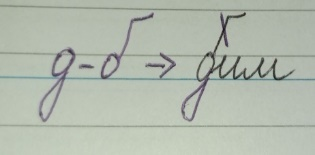 д-б → дим